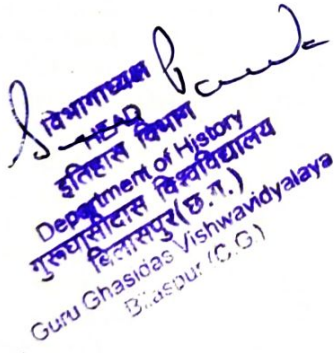 विभागाध्यक्ष
HEAD
इतिहास विभाग
Department of History
गुरूघासीदास विश्वविद्यालय
बिलासपुर (छ.ग.)
Guru Ghasidas Vishwavidyalaya
Bilaspur (C.G.)